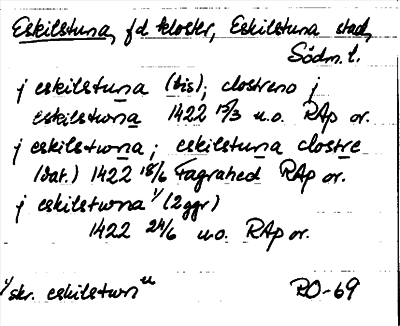 Eskilstuna, fd kloster, Eskilstuna stad,
Södm. l.
j eskilstuna (bis); closteno j
eskilstwna 1422 13/3 u.o. RAp or.
j eskilstwna; eskilstuna clostre
(dat.) 1422 18/6 Fagrahed RAp or.
j eskilstwna 1/ (2 ggr)
1422 24/6 u.o. RAp or.
1/ skr. eskilstwn u
RO-69